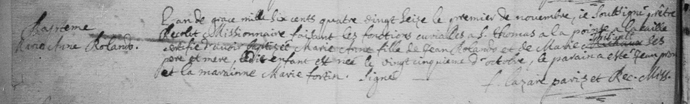 Bapteme
Marie Anne Rolands.
L'an de grace mille six cents quatre vingt seize le premier de novembre, ie soubsigné prêtre
Recolet Missionnaire faisant les fonctions curialles a St thomas a la pointe a la Caille
certifie d'avoir baptisée Marie Anne fille de Jean Rolands et de Marie ses
pere et mere, ledit enfant est née le vingt cinquieme d'octobre, le parain a esté
et la marainne Marie fortin. Signé f. Lazare paris et Rec. Miss.